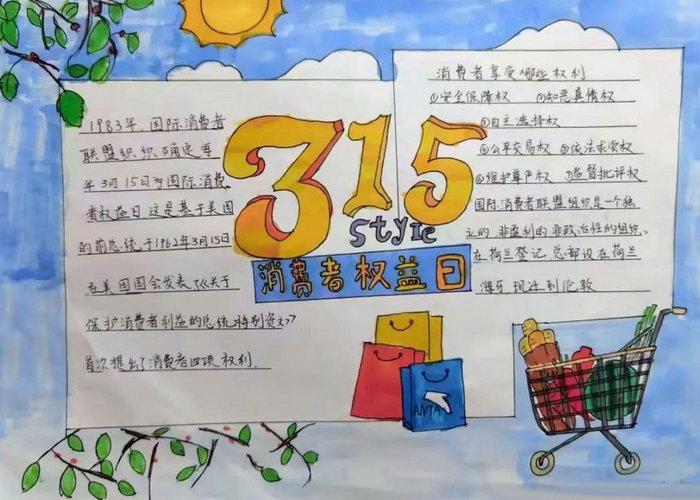 1983年,国际消费者
联盟组织确定每
年3月15日为国际消费
者权益日.这是基于美国
的前总统于1962年3月15日
在美国国会发表了《关于
保护消费者利益的总统特别咨文》
首次提出了消费者四项权利.
315
Style
消费者权益日
消费者享受哪些权利
①安全保障权 ②知悉真情权
③自主选择权
④公平交易权 ⑤依法求安权
⑥维护尊严权 ⑦监督批评权
国际消费者联盟组织是一个独
立的.非盈利的非政治性的组织。
在荷兰登记总部设在荷兰
海牙现迁到伦敦
ANTA